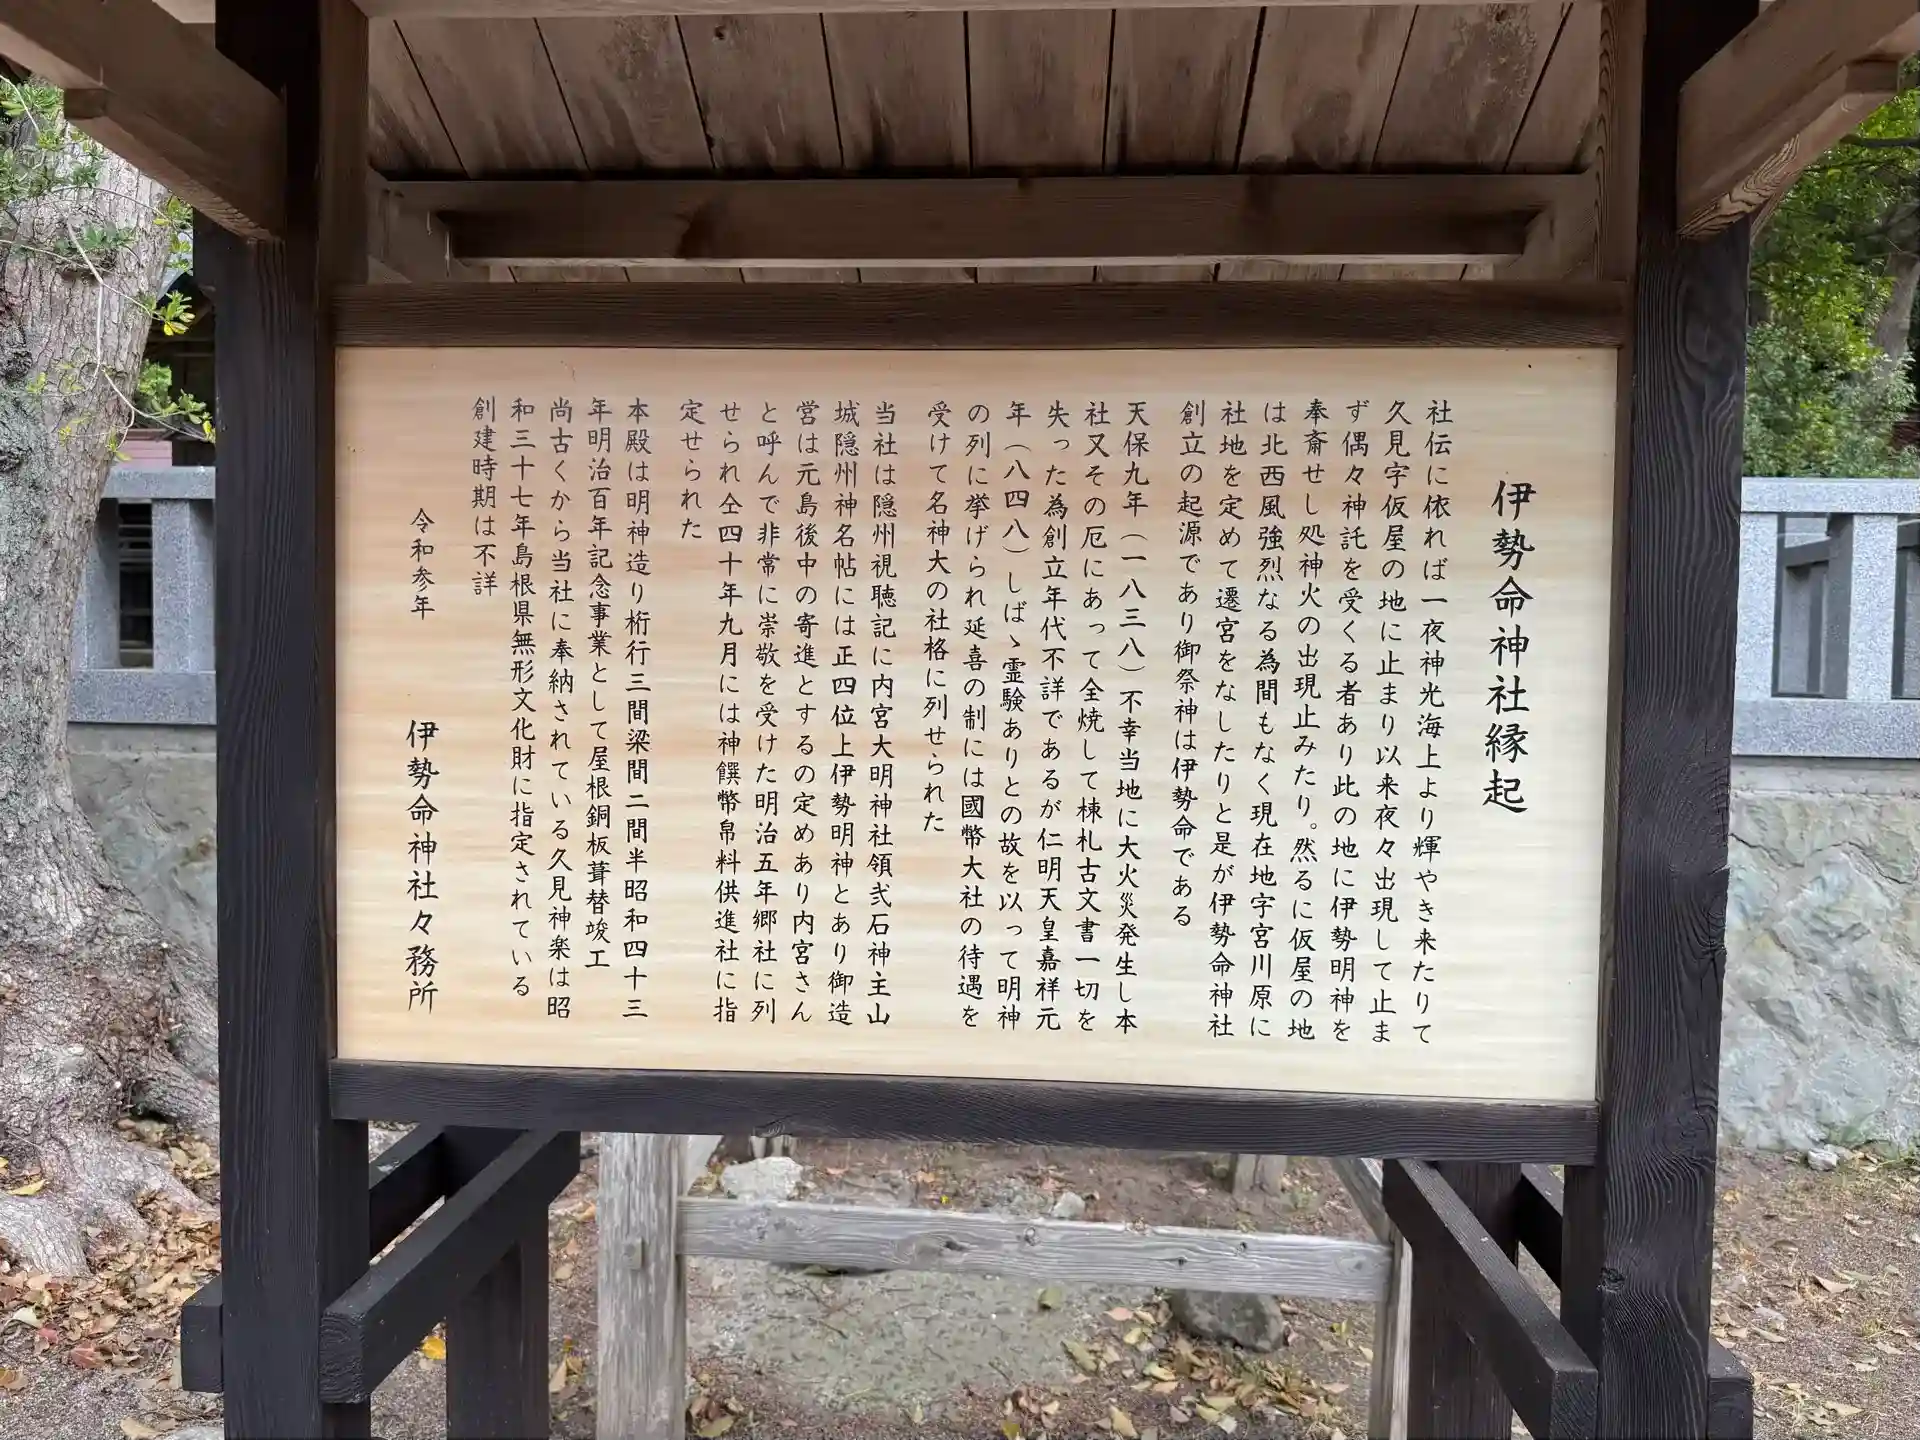 伊勢命神社縁起
社伝に依れば一夜神光海上より輝やき来たりて
久見字仮屋の地に止まり以来夜々出現して止ま
ず偶々神託を受くる者あり此の地に伊勢明神を
奉斎せし処神火の出現止みたり。然るに仮屋の地
は北西風強烈なる為間もなく現在地字宮川原に
社地を定めて遷宮をなしたりと是が伊勢命神社
創立の起源であり御祭神は伊勢命である
天保九年（一八三八）不幸当地に大火災発生し本
社又その厄にあって全焼して棟札古文書一切を
失った為創立年代不詳であるが仁明天皇嘉祥元
年（八四八）しばゝ霊験ありとの故を以って明神
の列に挙げられ延喜の制には國幣大社の待遇を
受けて名神大の社格に列せられた
当社は隠州視聴記に内宮大明神社領弐石神主山
城隠州神名帖には正四位上伊勢明神とあり御造
営は元島後中の寄進とするの定めあり内宮さん
と呼んで非常に崇敬を受けた明治五年郷社に列
せられ仝四十年九月には神饌幣帛料供進社に指
定せられた
本殿は明神造り桁行三間梁間二間半昭和四十三
年明治百年記念事業として屋根銅板葺替竣工
尚古くから当社に奉納されている久見神楽は昭
和三十七年島根県無形文化財に指定されている
創建時期は不詳
令和参年
伊勢命神社々務所